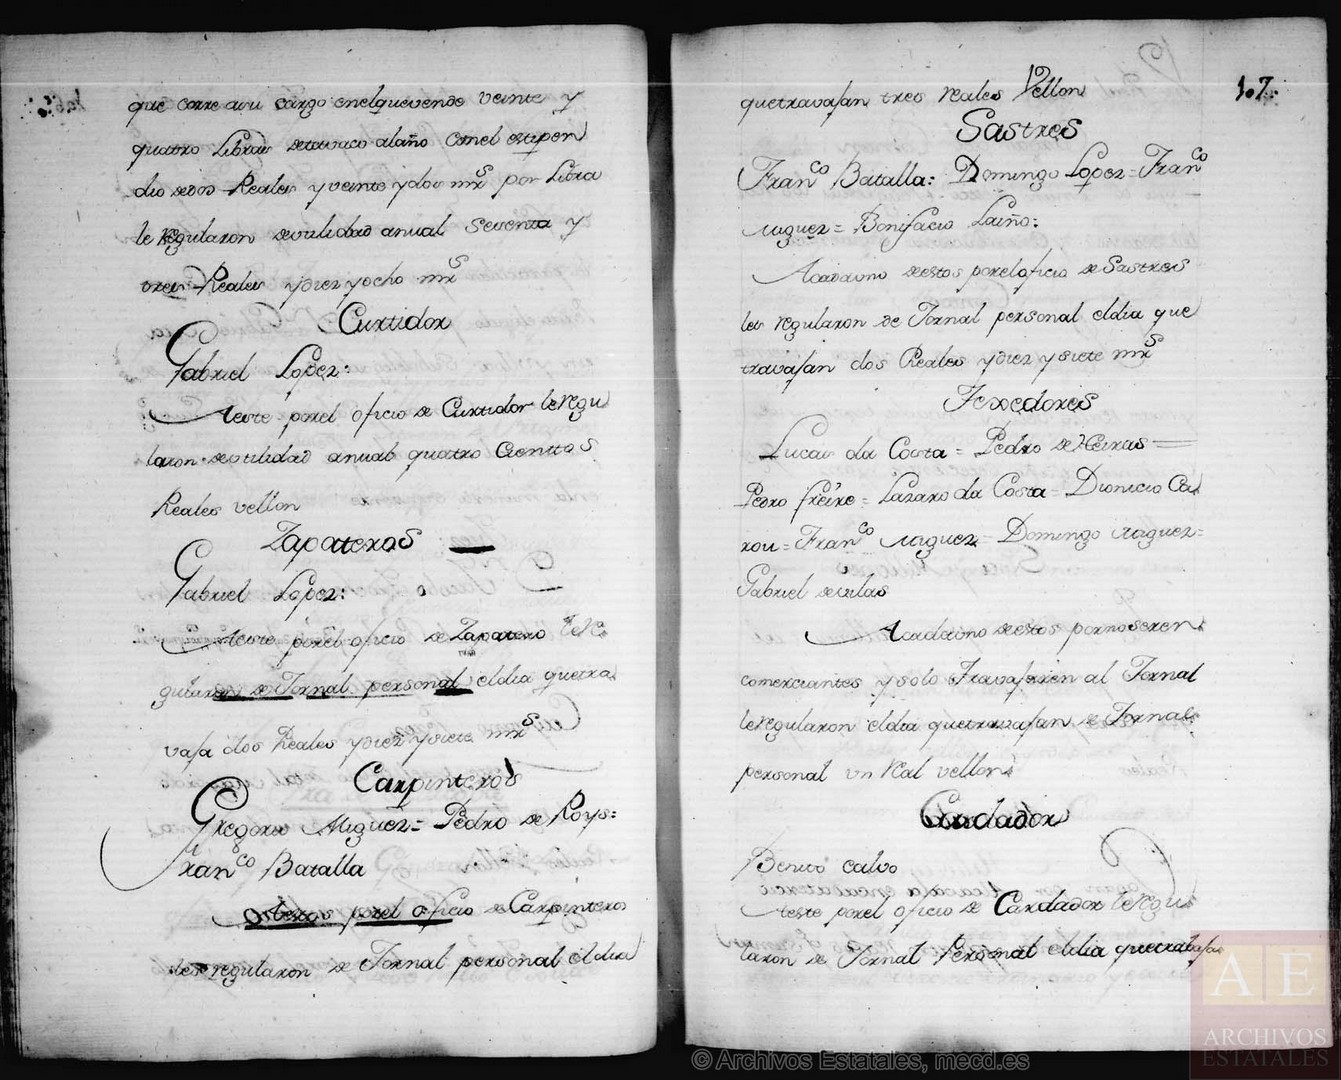 que corre asu cargo enelquevende veinte y
quatro Libras detavaco alaño conel estipen
dio dedos Reales y veinte ydos mrs por Libra
le regularon deutilidad anual Sesenta y
tres Reales ydiez yocho mrs
Curtidor
Gabriel Lopez:
Aeste porel oficio de Curtidor leregu
laron deutilidad anual quatro Cientos
Reales vellon
Zapateros
Gabriel Lopez:
Aeste porel oficio de Zapatero lere
gularon de Jornal personal eldia quetra
vasa dos Reales ydiez ysiete mrs
Carpinteros
Gregorio Miguez= Pedro de Roys=
Franco Batalla
Aestos porel oficio de Carpinteros
les regularon de Jornal personal el dia
quetravasan tres reales Vellon
107
Sastres
Franco Batalla: Domingo Lopez= Franco
Miguez= Bonifacio Laiño:
Acadauno destos porel oficio de Sastres
les regularon de Jornal personal eldia que
travasan dos Reales ydiez ysiete mrs
Texedores
Lucas da Costa= Pedro de Neiras=
Pedro freire= Lazaro da Costa= Dionicio
Franco Miguez= Domingo Miguez=
Gabriel devilas
Acadauno destos pornoseren
comerciantes y solo Travasaren al Jornal
leregularon eldia quetravasan de Jornal
personal un Real vellon
Cardador
Benito calvo
Aeste porel oficio de Cardador leregu
laron de Jornal Personal eldia quetrabasa
© Archivos Estatales, mecd.es
A E
ARCHIVOS
ESTATALES